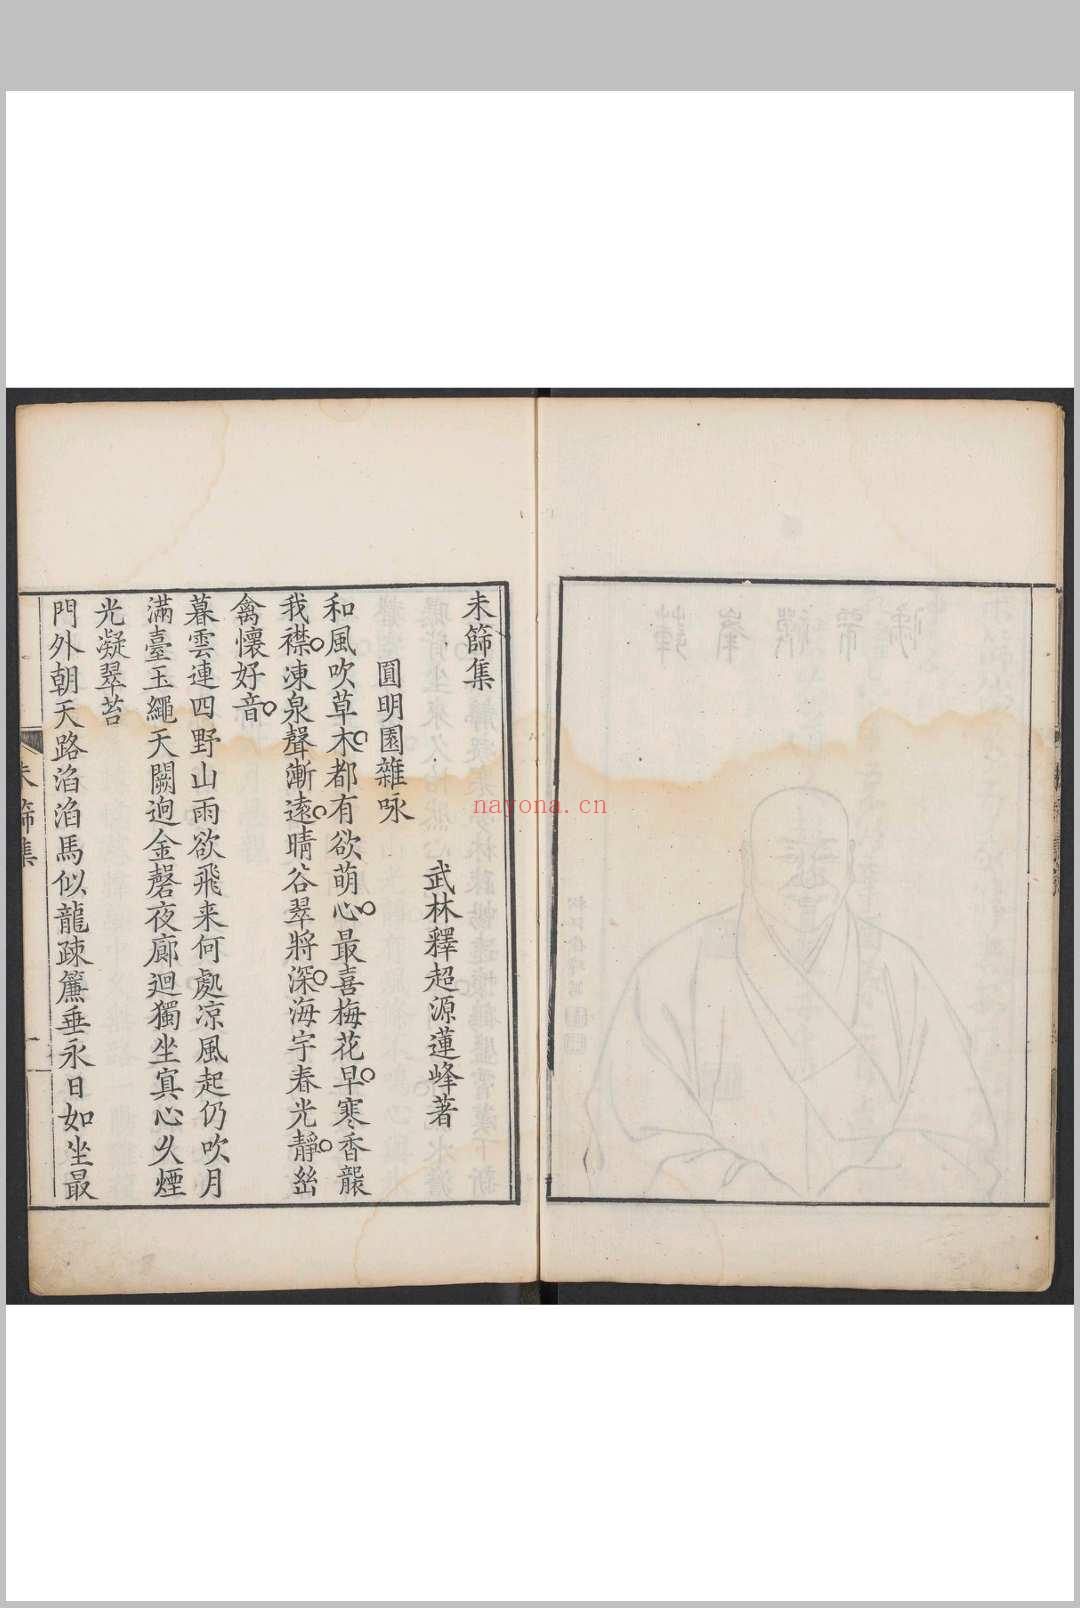 未篩集
武林釋超源蓮峰著
圓明園雜咏
和風吹草木都有欲萌心最喜梅花早寒香襲
我襟凍泉聲漸遠晴谷翠將深海宇春光靜幽
禽懷好音
暮雲連四野山雨欲飛来何處凉風起仍吹月
滿臺玉繩天闕迥金磬夜廊迴獨坐寘心久煙
光凝翠苔
門外朝天路滔滔馬似龍疎簾垂永日如坐最
未篩集
nayona.cn